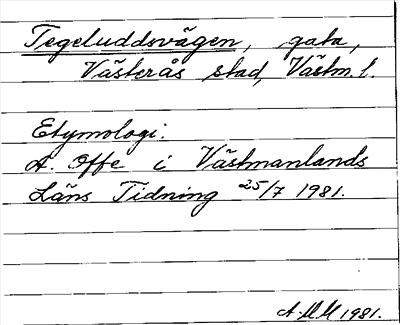 Tegeluddsvägen, gata,
Västerås stad, Västm. l.
Etymologi.
A. Offe i Västmanlands
Läns Tidning 25/7 1981.
A-MM 1981.